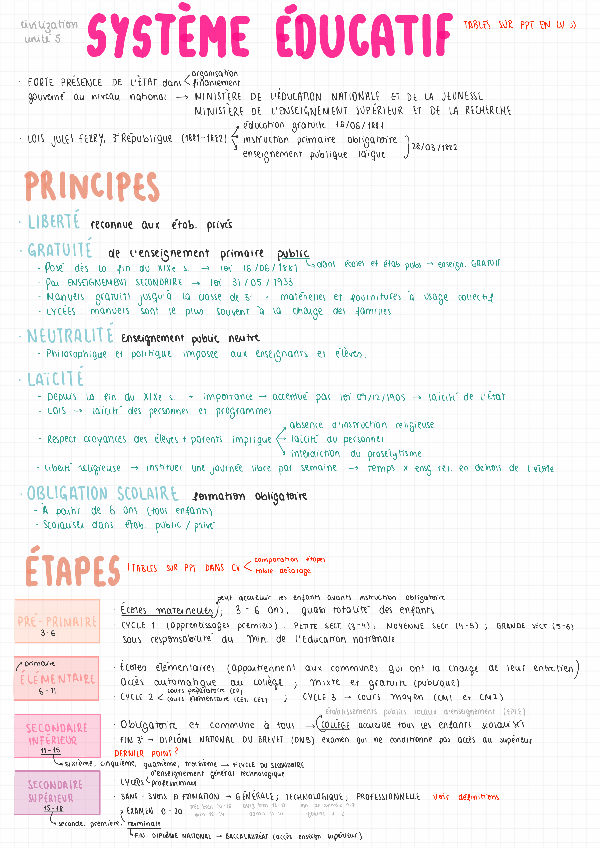 civilization
unité 5
SYSTÈME ÉDUCATIF
TABLES SUR PPT EN CV :)
· FORTE PRÉSENCE DE L'ÉTAT dans organisation
financement
gouverné au niveau national → MINISTÈRE DE L'ÉDUCATION NATIONALE ET DE LA JEUNESSE
MINISTÈRE DE L'ENSEIGNEMENT SUPÉRIEUR ET DE LA RECHERCHE
éducation gratuite 16/06/1881
· LOIS JULES FERRY, 3e République (1881-1882) instruction primaire obligatoire
enseignement publique laïque 28/03/1882
PRINCIPES
· LIBERTÉ reconnue aux étab. privés
· GRATUITÉ de l'enseignement primaire public
→ dans écoles et étab pubs → enseign. GRATUIT
- Posé dès la fin du XIXe s. → loi 16/06/1881
- Par ENSEIGNEMENT SECONDAIRE → loi 31/05/1933
- Manuels gratuits jusqu'à la classe de 3e - matérielles et fournitures à usage collectif
- LYCÉES manuels sont le plus souvent à la charge des familles
· NEUTRALITÉ Enseignement public neutre
- Philosophique et politique imposée aux enseignants et élèves.
· LAÏCITÉ
- Depuis la fin du XIXe s. + importance → accentué par loi 09/12/1905 → laïcité de l'État
- LOIS → laïcité des personnes et programmes
absence d'instruction religieuse
- Respect croyances des élèves + parents implique laïcité du personnel
interdiction du prosélytisme
- Liberté religieuse → instituer une journée libre par semaine → temps x ens rel. en dehors de l'école
· OBLIGATION SCOLAIRE formation obligatoire
- À partir de 6 ans (tous enfants)
- Scolarisés dans étab. public / privé
ÉTAPES
(TABLES SUR PPT DANS CV comparation étapes
table décalage
peut accueillir les enfants avants instruction obligatoire
PRÉ-PRIMAIRE
3-6
· Écoles maternelles, 3-6 ans, quasi totalité des enfants
CYCLE 1 (Apprentissages premiers). PETITE SECT (3-4), MOYENNE SECT (4-5), GRANDE SECT (5-6)
Sous responsabilité du Min. de l'Éducation nationale
primaire
ÉLÉMENTAIRE
6-11
· Écoles élémentaires (appartiennent aux communes qui ont la charge de leur entretien)
Accès automatique au collège, mixte et gratuite (publique)
· CYCLE 2 cours préparatoire (CP)
cours élémentaire (CE1, CE2) ; CYCLE 3 → cours moyen (CM1 et CM2)
établissements publics locaux d'enseignement (EPLE)
SECONDAIRE
INFÉRIEUR
11-15
· Obligatoire et commune à tous → COLLÈGE accueille tous les enfants scolarisés
FIN 3e → DIPLÔME NATIONAL DU BREVET (DNB) examen qui ne conditionne pas accès au supérieur
DERNIER POINT?
sixième, cinquième, quatrième, troisième → 1er CYCLE DU SECONDAIRE
SECONDAIRE
SUPÉRIEUR
15-18
· LYCÉES d'enseignement général technologique
professionnels
· SANS: 3 VOIES D FORMATION → GÉNÉRALE, TECHNOLOGIQUE, PROFESSIONNELLE voir définitions
EXAMEN 0-20
seconde, première, terminale
FIN DIPLÔME NATIONAL → BACCALAURÉAT (accès enseign supérieur)